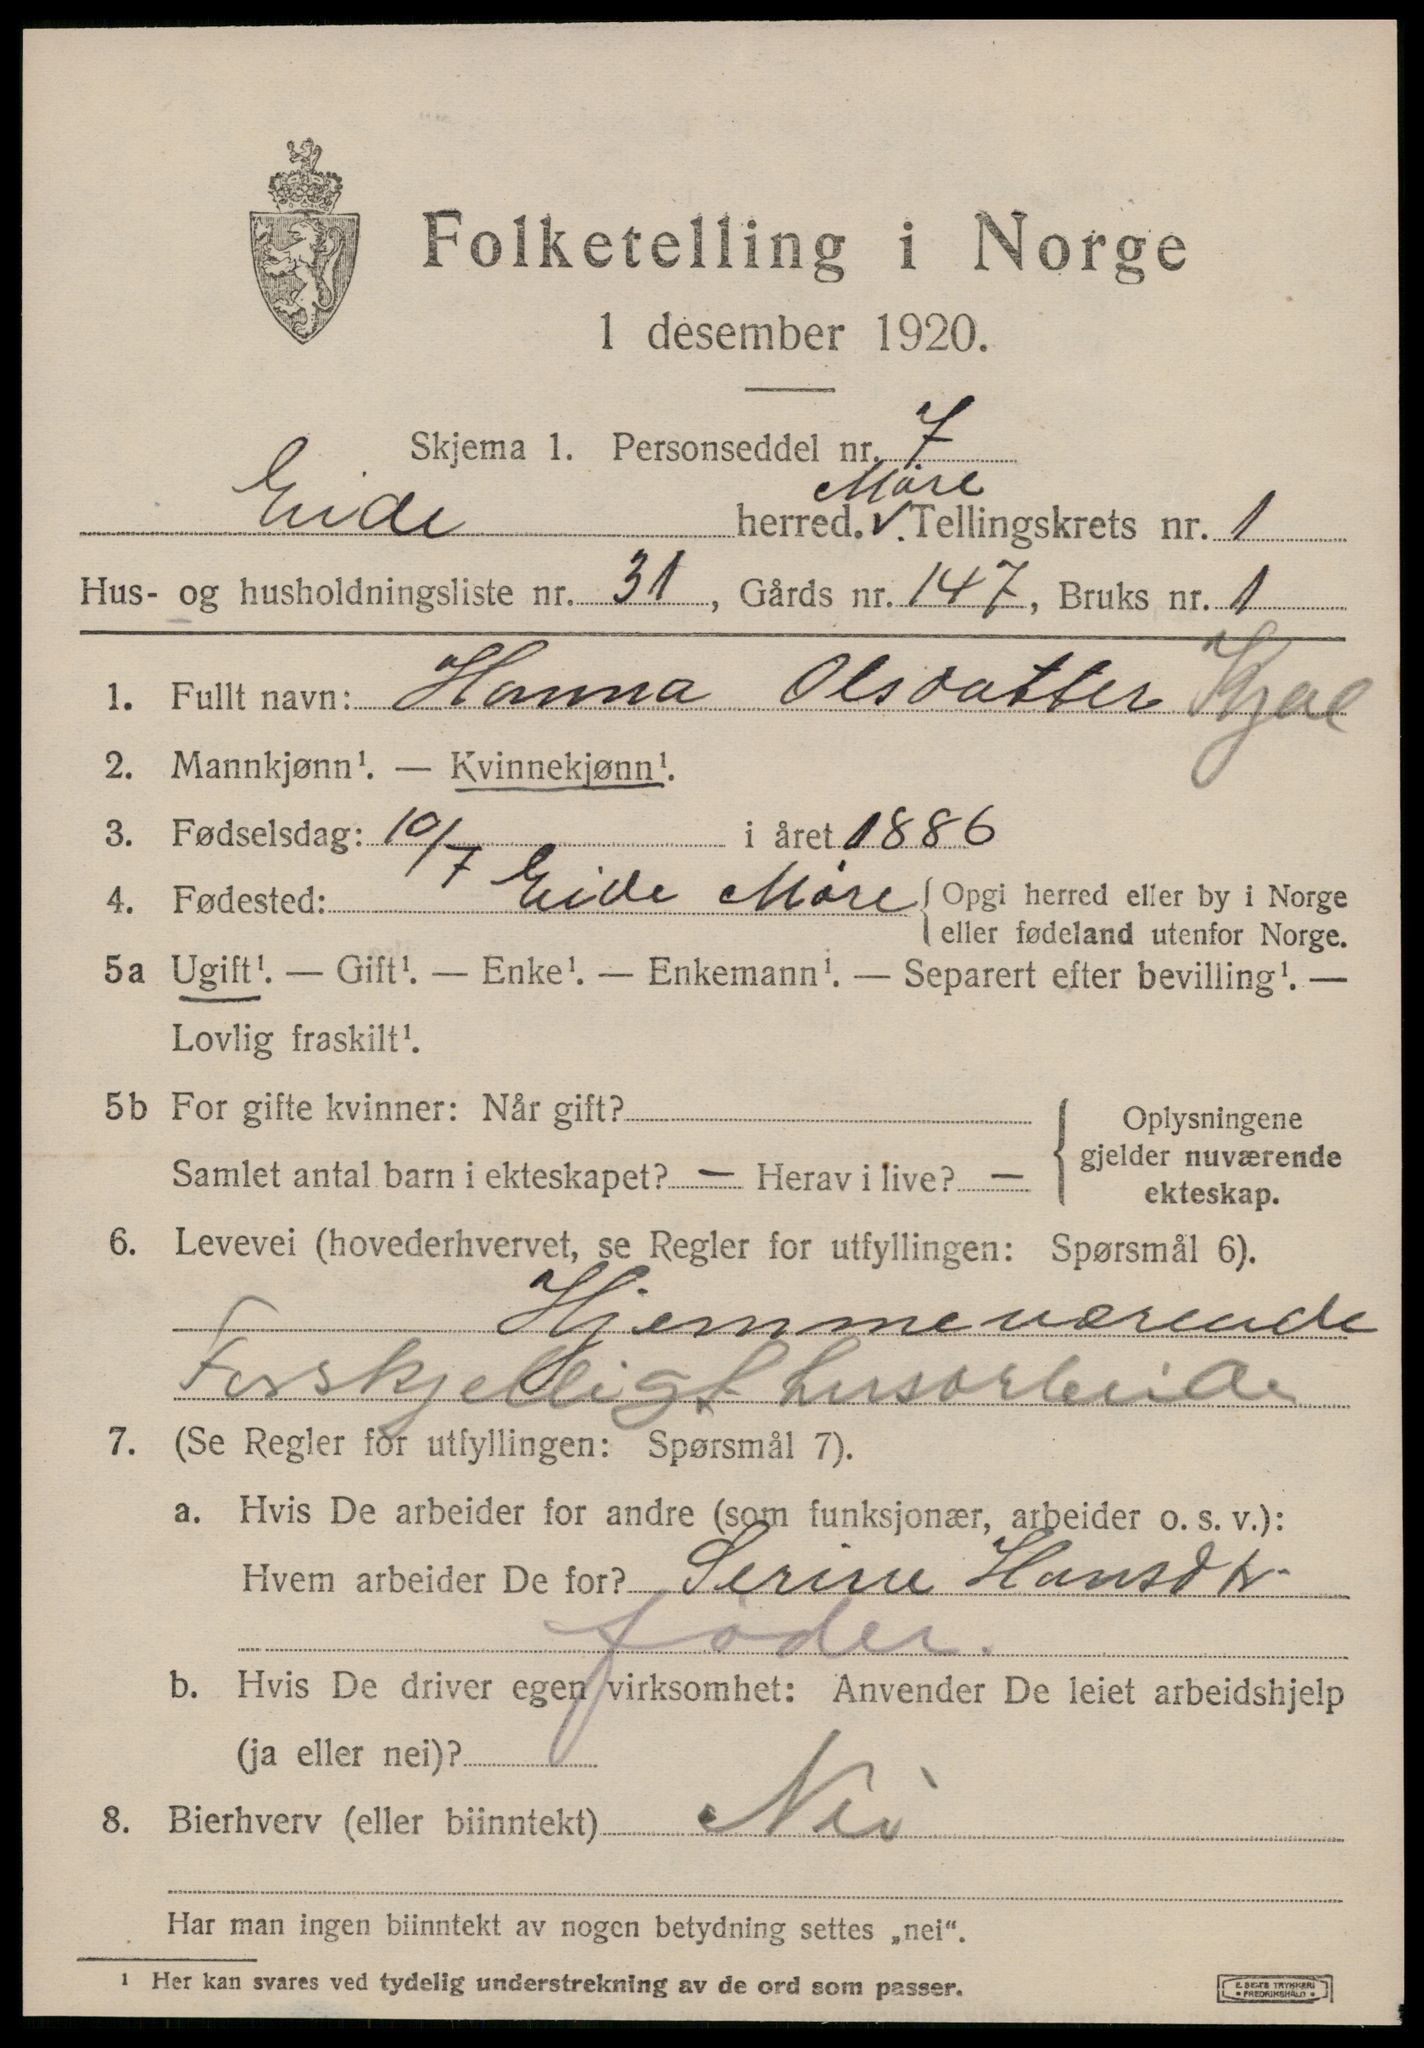 Folketelling i Norge
1 desember 1920.
Skjema 1. Personseddel nr. 7
Møre
Eide herred. v. Tellingskrets nr. 1
Hus- og husholdningsliste nr. 31, Gårds nr. 147, Bruks nr. 1
1. Fullt navn: Hanna Olsdatter
2. Mannkjønn¹. — Kvinnekjønn¹.
3. Fødselsdag: 10/7 i året 1886
4. Fødested: Eide Møre { Opgi herred eller by i Norge
eller fødeland utenfor Norge.
5a Ugift¹. — Gift¹. — Enke¹. — Enkemann¹. — Separert efter bevilling¹. —
Lovlig fraskilt¹.
5b For gifte kvinner: Når gift?
Samlet antal barn i ekteskapet? — Herav i live? —
{ Oplysningene
gjelder nuværende
ekteskap.
6. Levevei (hovederhvervet, se Regler for utfyllingen: Spørsmål 6).
Hjemmeværende
Forskjelligt husarbeide
7. (Se Regler for utfyllingen: Spørsmål 7).
a. Hvis De arbeider for andre (som funksjonær, arbeider o. s. v.):
Hvem arbeider De for? Serine Hansdtr
føder.
b. Hvis De driver egen virksomhet: Anvender De leiet arbeidshjelp
(ja eller nei)?
8. Bierhverv (eller biinntekt) Nei
Har man ingen biinntekt av nogen betydning settes „nei“.
¹ Her kan svares ved tydelig understrekning av de ord som passer.
E. SEMS TRYKKERI
• FREDRIKSHALD •